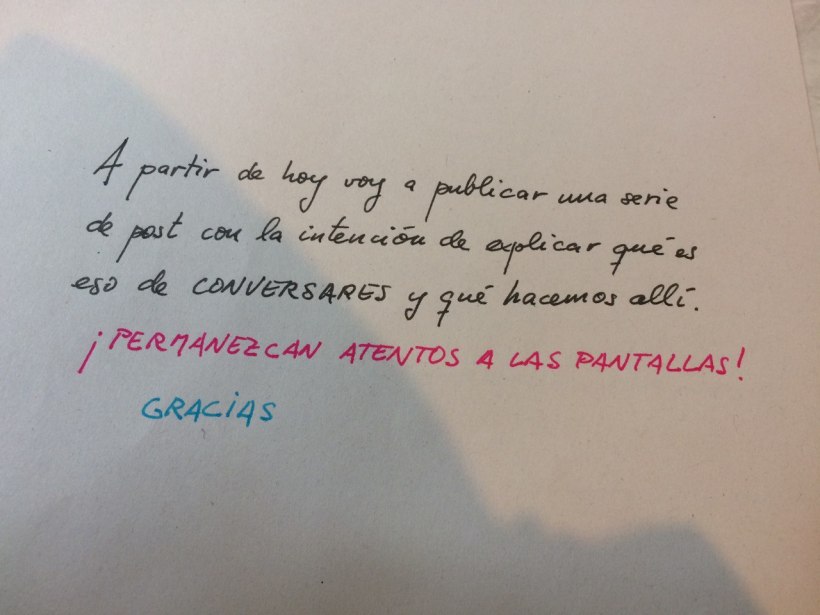 A partir de hoy voy a publicar una serie
de post con la intención de explicar qué es
eso de CONVERSARES y qué hacemos allí.
¡PERMANEZCAN ATENTOS A LAS PANTALLAS!
GRACIAS